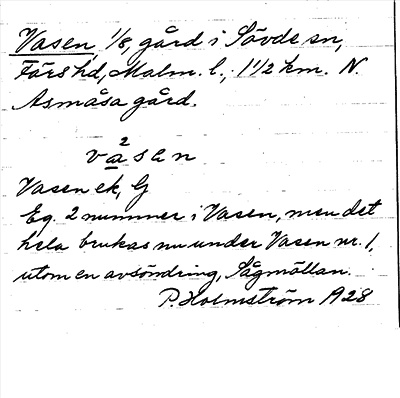 Vasen, 1/8, gård i Sövde sn,
Färs hd, Malm. l., 1 1/2 km. N.
Asmåsa gård.
2
våsen
Vasen ek, G
Eg. 2 nummer i Vasen, men det
hela brukas nu under Vasen nr. 1,
utom en avsöndring, Sågmöllan.
P. Holmström A28